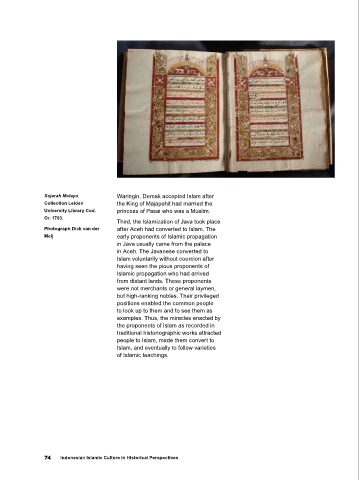 Sejarah Melayu.
Collection Leiden
University Library Cod.
Or. 1703.
Photograph Dick van der
Meij
Waringin, Demak accepted Islam after
the King of Majapahit had married the
princess of Pasai who was a Muslim.
Third, the Islamization of Java took place
after Aceh had converted to Islam. The
early proponents of Islamic propagation
in Java usually came from the palace
in Aceh. The Javanese converted to
Islam voluntarily without coercion after
having seen the pious proponents of
Islamic propagation who had arrived
from distant lands. These proponents
were not merchants or general laymen,
but high-ranking nobles. Their privileged
positions enabled the common people
to look up to them and to see them as
examples. Thus, the miracles enacted by
the proponents of Islam as recorded in
traditional historiographic works attracted
people to Islam, made them convert to
Islam, and eventually to follow varieties
of Islamic teachings.
74 Indonesian Islamic Culture in Historical Perspectives